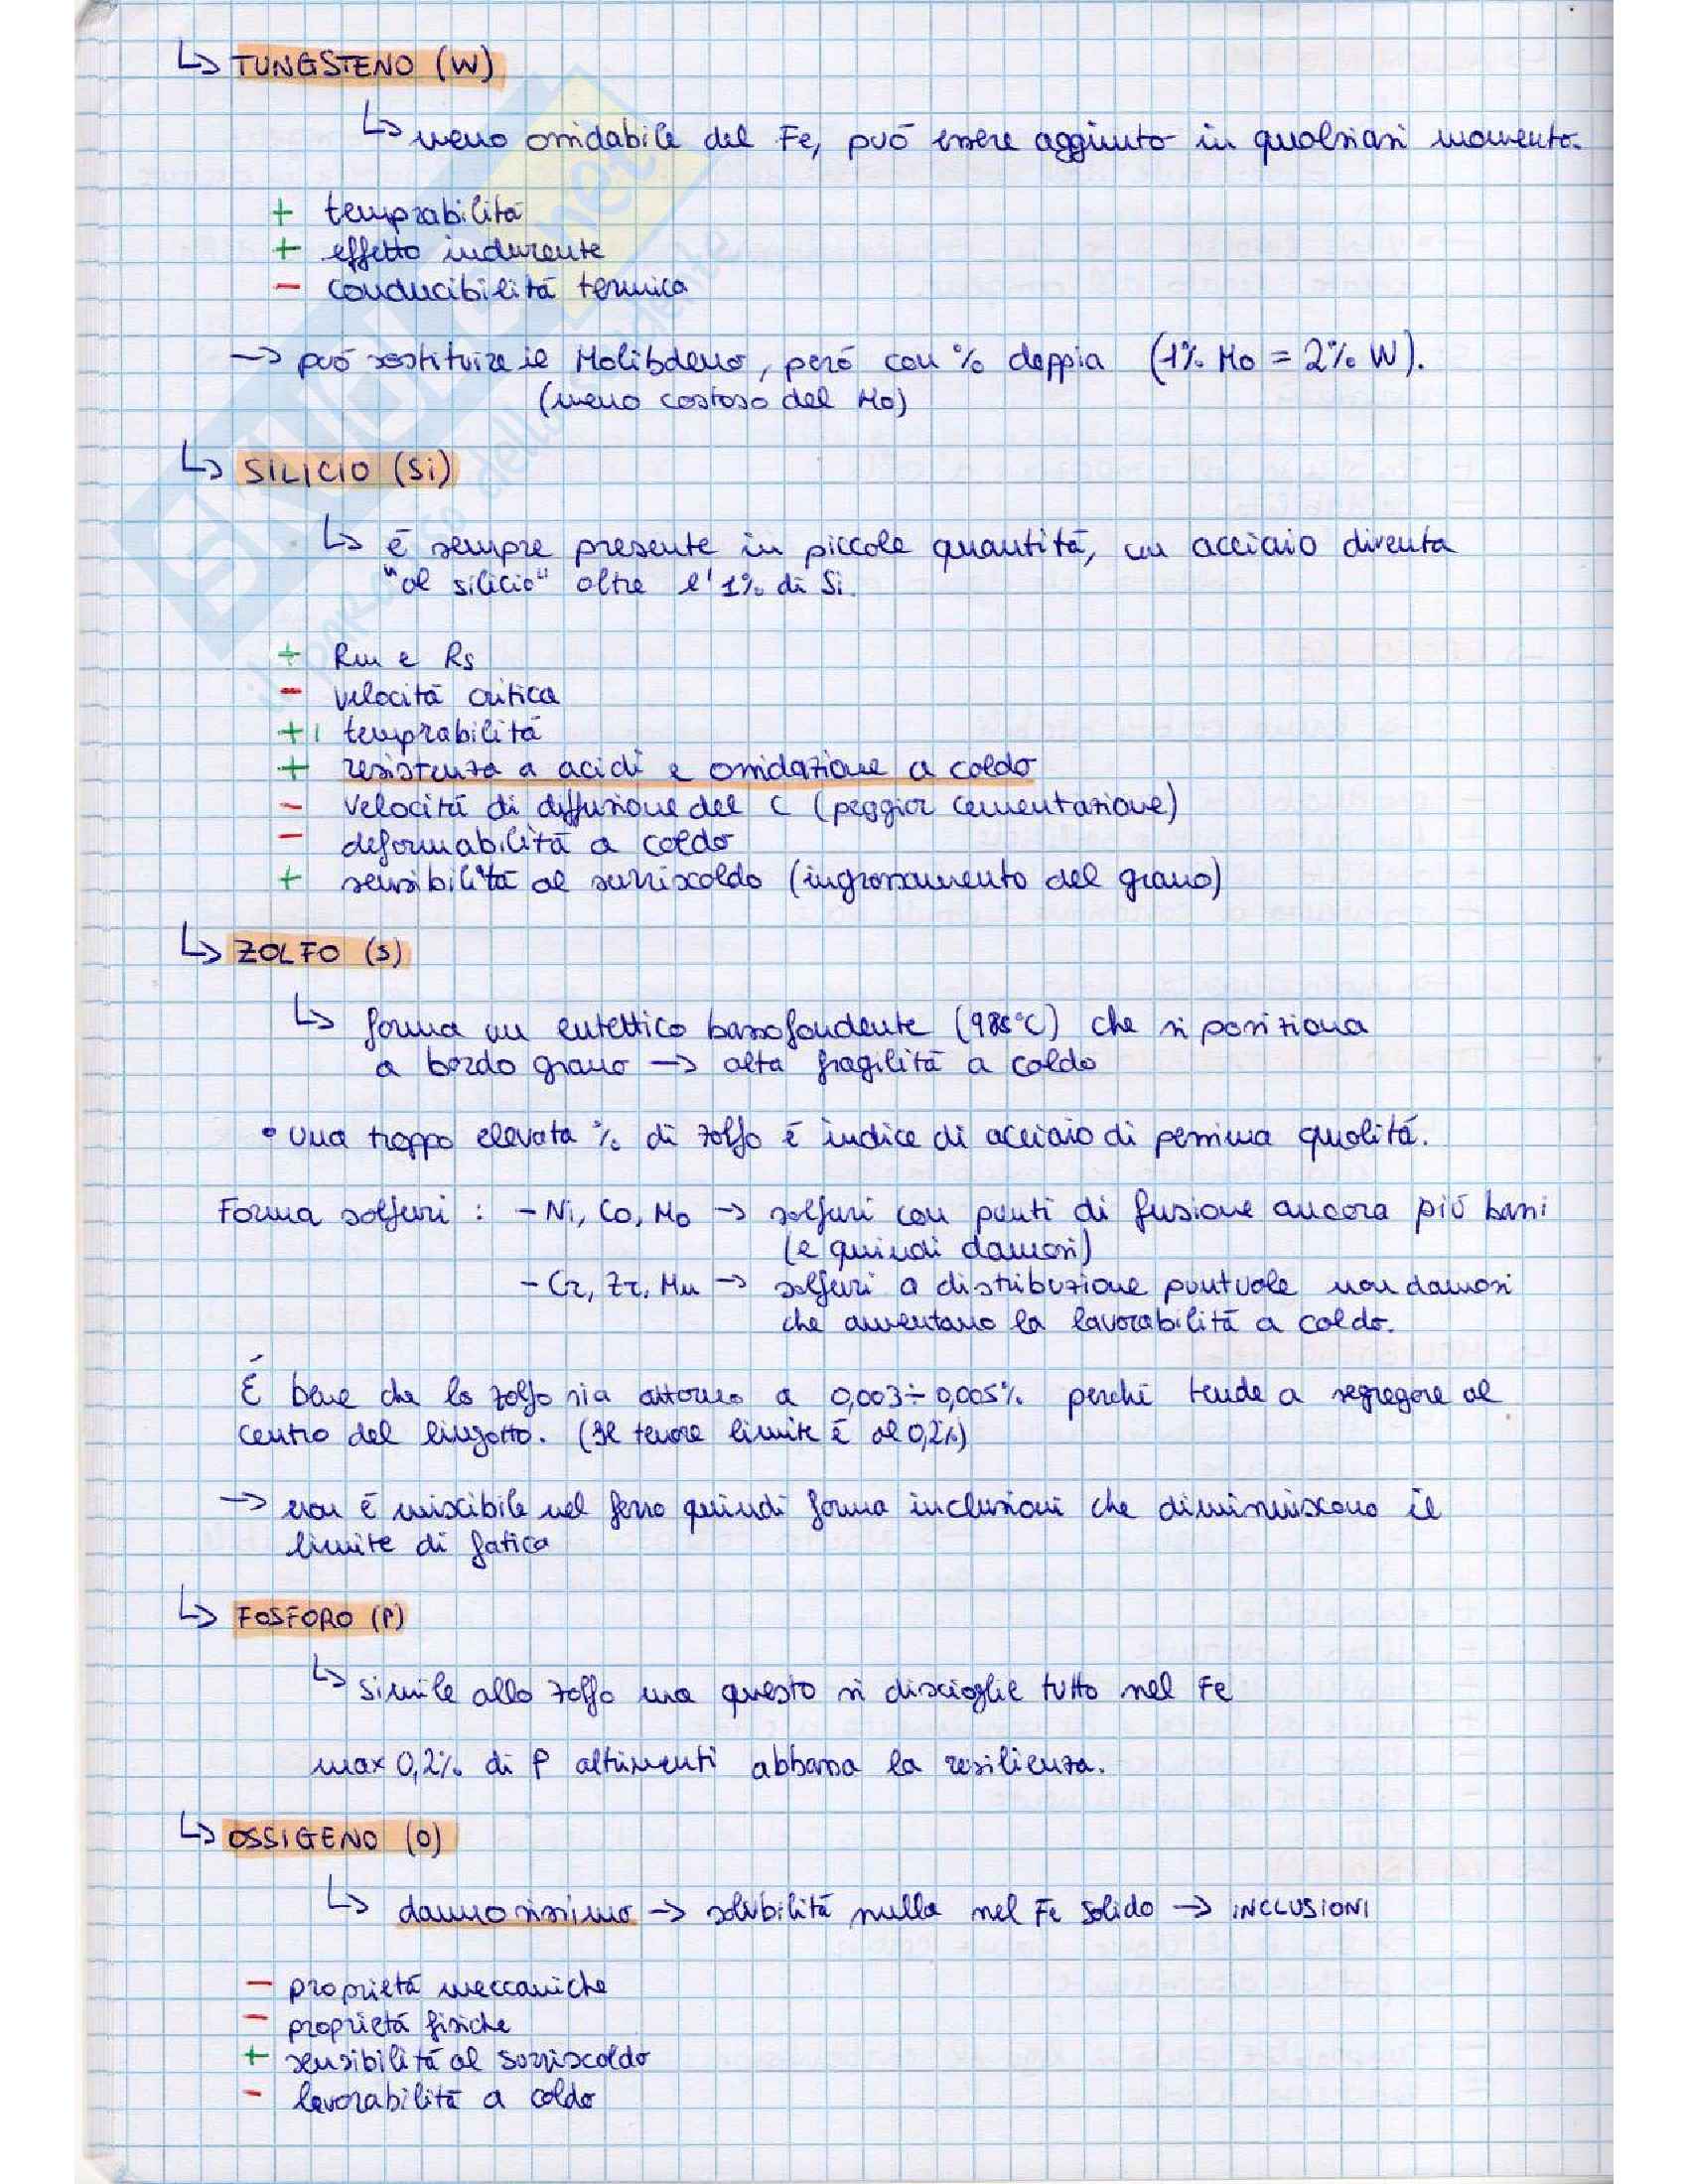 ↳ TUNGSTENO (W)
↳ meno ossidabile del Fe, può essere aggiunto in qualsiasi momento.
+ temprabilità
+ effetto indurente
- conducibilità termica
→ può sostituire il Molibdeno, però con % doppia (1% Mo = 2% W).
(meno costoso del Mo)
↳ SILICIO (Si)
↳ è sempre presente in piccole quantità, un acciaio diventa
"al silicio" oltre l'1% di Si.
+ Rm e Rs
- velocità critica
+ temprabilità
+ resistenza a acidi e ossidazione a caldo
- velocità di diffusione del C (peggior cementazione)
- deformabilità a caldo
+ sensibilità al surriscaldo (ingrossamento del grano)
↳ ZOLFO (S)
↳ forma un eutettico bassofondente (985°C) che si posiziona
a bordo grano → alta fragilità a caldo
• una troppo elevata % di zolfo è indice di acciaio di pessima qualità.
Forma solfuri : - Ni, Co, Mo → solfuri con punti di fusione ancora più bassi
(e quindi dannosi)
- Cr, Zr, Mn → solfuri a distribuzione puntuale non dannosi
che aumentano la lavorabilità a caldo.
È bene che lo zolfo sia attorno a 0,003÷0,005% perché tende a segregare al
centro del lingotto. (Il tenore limite è al 0,2%)
→ non è miscibile nel ferro quindi forma inclusioni che diminuiscono il
limite di fatica
↳ FOSFORO (P)
↳ simile allo zolfo ma questo si discioglie tutto nel Fe
max 0,2% di P altrimenti abbassa la resilienza.
↳ OSSIGENO (O)
↳ dannosissimo → solubilità nulla nel Fe solido → INCLUSIONI
- proprietà meccaniche
- proprietà fisiche
+ sensibilità al surriscaldo
- lavorabilità a caldo